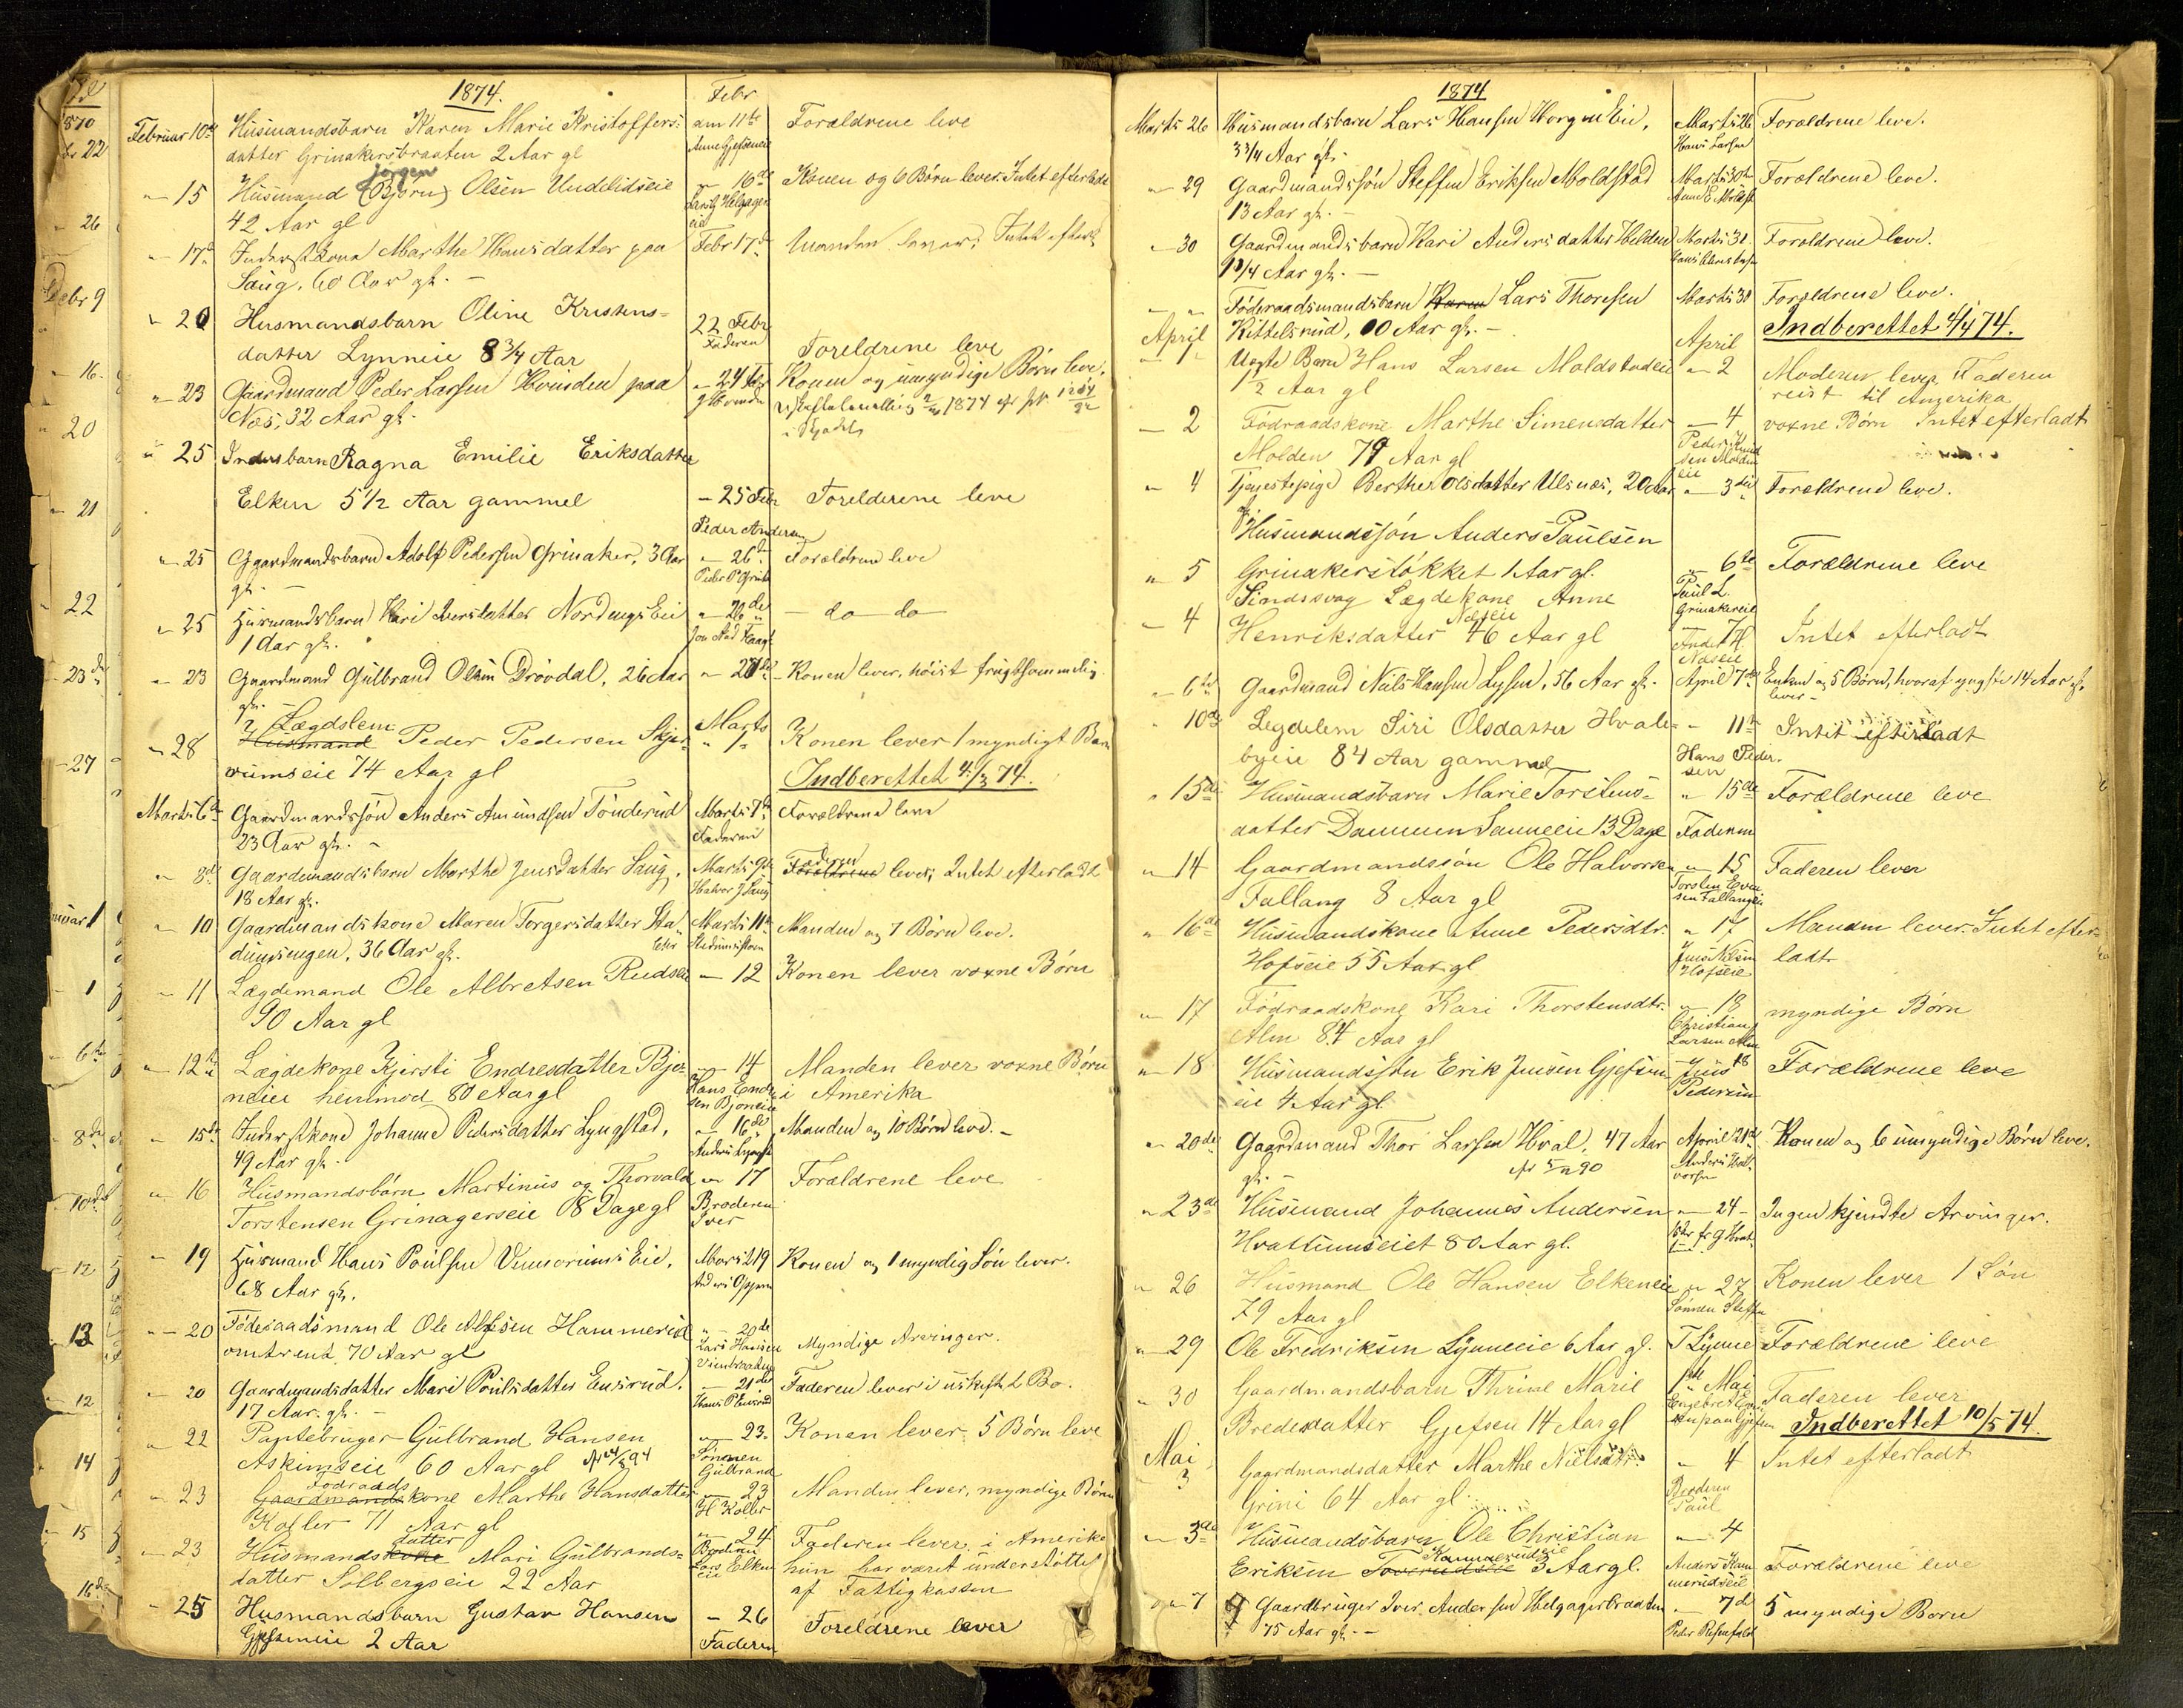 1874.
Febr
Februar 10de Husmandsbarn Karen Marie Kristoffers- am 11te Forældrene leve
datter Grinakersbraaten 2 Aar gl
Jørgen
" 15 Husmand (Bjørn) Olsen Undelidseie " 16de Konen og 6 Børn lever. Intet efterladt
42 Aar gl
" 17de Inderstkone Marthe Hansdatter paa Febr 17de Manden lever, Intet efterl.
Saug, 60 Aar gl. -
" 20 Husmandsbarn Oline Kristens- 22 Febr
datter Lynneie 8 3/4 Aar Faderen Foreldrene leve
" 23 Gaardmand Peder Larsen Hvinden paa " 24 Febr Konen og umyndige Børn leve.
Næs, 32 Aar gl. 1874
" 25 Inderstbarn Ragna Emilie Eriksdatter
Elken 5 1/2 Aar gammel - 25 Febr Forelderene leve
Peder Andersen
" 25 Gaardmandsbarn Adolf Pedersen Grinaker, 3 Aar " 26de Forældrene leve
gl. - Peder P Grinak
" 25 Husmandsbarn Kari Iversdatter Nordengs Eie " 26de - do - do -
1 Aar gl.
" 23 Gaardmand Gulbrand Olsen Drøvdal, 26 Aar " 28de - Konen lever, høist frugtsommelig
gl. -
Lægdslem Marts
" 28 Husmand Peder Pedersen Skjer- " 1 Konen lever 1 myndigt Barn
vumseie 74 Aar gl Indberettet 4/3 74.
Marts 6te Gaardmandssøn Anders Amundsen Tønderud Marts 7de Forældrene leve
23 Aar gl. - Faderen
Faderen
" 8de Gaardmandsbarn Marthe Jensdatter Saug, Marts 9de Forældrene lever, Intet efterladt
18 Aar gl. Halvor J Saug
" 10 Gaardmandskone Maren Torgersdatter Sta- Marts 11te Manden og 7 Børn leve.
dumsengen, 36 Aar gl.
" 11 Lægdemand Ole Albretsen Rudseie - 12 Konen lever voxne Børn
90 Aar gl
" 12te Lægdekone Kjersti Endresdatter Bjø- " 14 Manden lever voxne Børn
neiei henimod 80 Aar gl Hans Endre- i Amerika
sen Bjoneie
" 15de Inderstkone Johanne Pedersdatter Lyngstad, " 16de Manden og 10 Børn leve. -
49 Aar gl. - Anders Lyngst
" 16 Husmandsbørn Martinius og Thorvald " 17 Forældrene leve
Torstensen Grinagerseie 8 Dage gl Broderen
Iver
" 19 Husmand Hans Poulsen Vennerums Eie, Marts 19 Konen og 1 myndig Søn lever.
68 Aar gl. Anders Oppen
" 20 Føderaadsmand Ole Alfsen Hammerud " 20de Myndige Arvinger.
omtrent 70 Aar gl Lars Hansen
" 20 Gaardmandsdatter Mari Poulsdatter Ensrud, " 21de Faderen lever i uskiftet Bo.
17 Aar. gl. - Hans P Ensrud
" 22 Pantebruger Gulbrand Hansen " 23. Konen lever 5 Børn leve
Askimseie 60 Aar gl Sønnen
Gulbrand
Fødraads
" 23 Gaardmandskone Marthe Hansdatter " 23 Manden lever, myndige Børn
Koller 71 Aar gl H Koller
datter
" 23 Husmandskone Mari Gulbrands- " 24 Faderen lever i Amerika
datter Solbergseie 22 Aar Broderen hun har været understøttet
Lars Elken
eie af Fattigkassen
" 25 Husmandsbarn Gustav Hansen - 26 Foreldrene lever
Gjefseneie 2 Aar Faderen
1874
Marts 26 Husmandsbarn Lars Hansen Horgen Eie, Marts 26 Forældrene leve.
3 3/4 Aar gl. Hans Larsen
" 29 Gaardmandssøn Steffen Eriksen Moldstad Marts 30te Forældrene leve.
13 Aar gl. -
" 30 Gaardmandsbarn Kari Andersdatter Helden Marts 31 Forældrene leve.
1 3/4 Aar gl. -
" " Føderaadsmandsbarn Karen Lars Thoresen Marts 31 Forældrene leve.
April Kittelsrud, 10 Aar gl. - April Indberettet 4/4 74.
" 1 Uegte Barn Hans Larsen Moldstadeie " 2 Moderen lever Faderen
1/2 Aar gl reist til Amerika
- 2 Fødraadskone Marthe Simensdatter - 4 voxne Børn Intet efterladt
Molden 79 Aar gl Peder Knud
sen Molden
eie
" 4 Tjenestepige Berthe Olsdatter Ulsnæs, 20 Aar " 3die Forældrene leve.
gl.
Husmandssøn Anders Paulsen
" 5 Grinakerstøkket 1 Aar gl. " 6te Forældrene leve
Paul L.
Grinakereie
- 4 Sindssvag Lægdekone Anne
Næseie
Henriksdatter 46 Aar gl 7 Intet efterladt
Næseie
" 6te Gaardmand Niels Hansen Lysen, 56 Aar gl. April 7de Enken og 5 Børn, hvoraf yngste 14 Aar gl,
lever -
" 10de Legdelem Siri Olsdatter Hvale- - 11te Intet efterladt
byeie 84 Aar gammel Hans Peder-
sen
" 15de Husmandsbarn Marie Torstens- " 15de Forældrene leve
datter Dammen Sanneeie 13 Dage Faderen
" 14 Gaardmandssøn Ole Halvorsen " 15 Faderen lever
Fallang 8 Aar gl Torsten Even
sen Fallangeie
" 16de Husmandskone Anne Pedersdtr. " 17 Manden lever. Intet efter-
Hofseie 55 Aar gl Jens Nilsen ladt
Hofseie
" 17 Fødraadskone Kari Thorstensdtr. " 18 myndige Børn
Alm 84 Aar gl Christian
Larsen Alm
" 18 Husmandssøn Erik Jensen Gjefsen- - 18 Forældrene leve
eie 4 Aar gl Jens
Pedersen
" 20de Gaardmand Thor Larsen Hval, 47 Aar April 21de Konen og 6 umyndige Børn leve.
gl. - Anders Hal-
vorsen
" 23de Husmand Johannes Andersen - 24 - Ingen kjendte Arvinger.
Hvattumseiet 80 Aar gl.
" 26 Husmand Ole Hansen Elkeneie " 27 Konen lever 1 Søn
79 Aar gl Sønnen Steffen
" 29 Ole Fredriksen Lynneeie 6 Aar gl. T Lynne Forældrene leve
" 30 Gaardmandsbarn Thrine Marie 1ste Mai Faderen lever
Bredesdatter Gjefsen 14 Aar gl Indberettet 10/5 74.
Mai
3 Gaardmandsdatter Marthe Nielsdtr. - 4 Intet efterladt
Grini 64 Aar gl. Broderen
Paul
" 3de Husmandsbarn Ole Christian " 4
Kammerudeie
Eriksen 3 Aar gl. Anders Kam Forældrene leve
merudseie
" 7 Gaardbruger Iver Andersen Helgagerbraaten " 7de 5 myndige Børn
75 Aar gl. - Peder Rosenfald